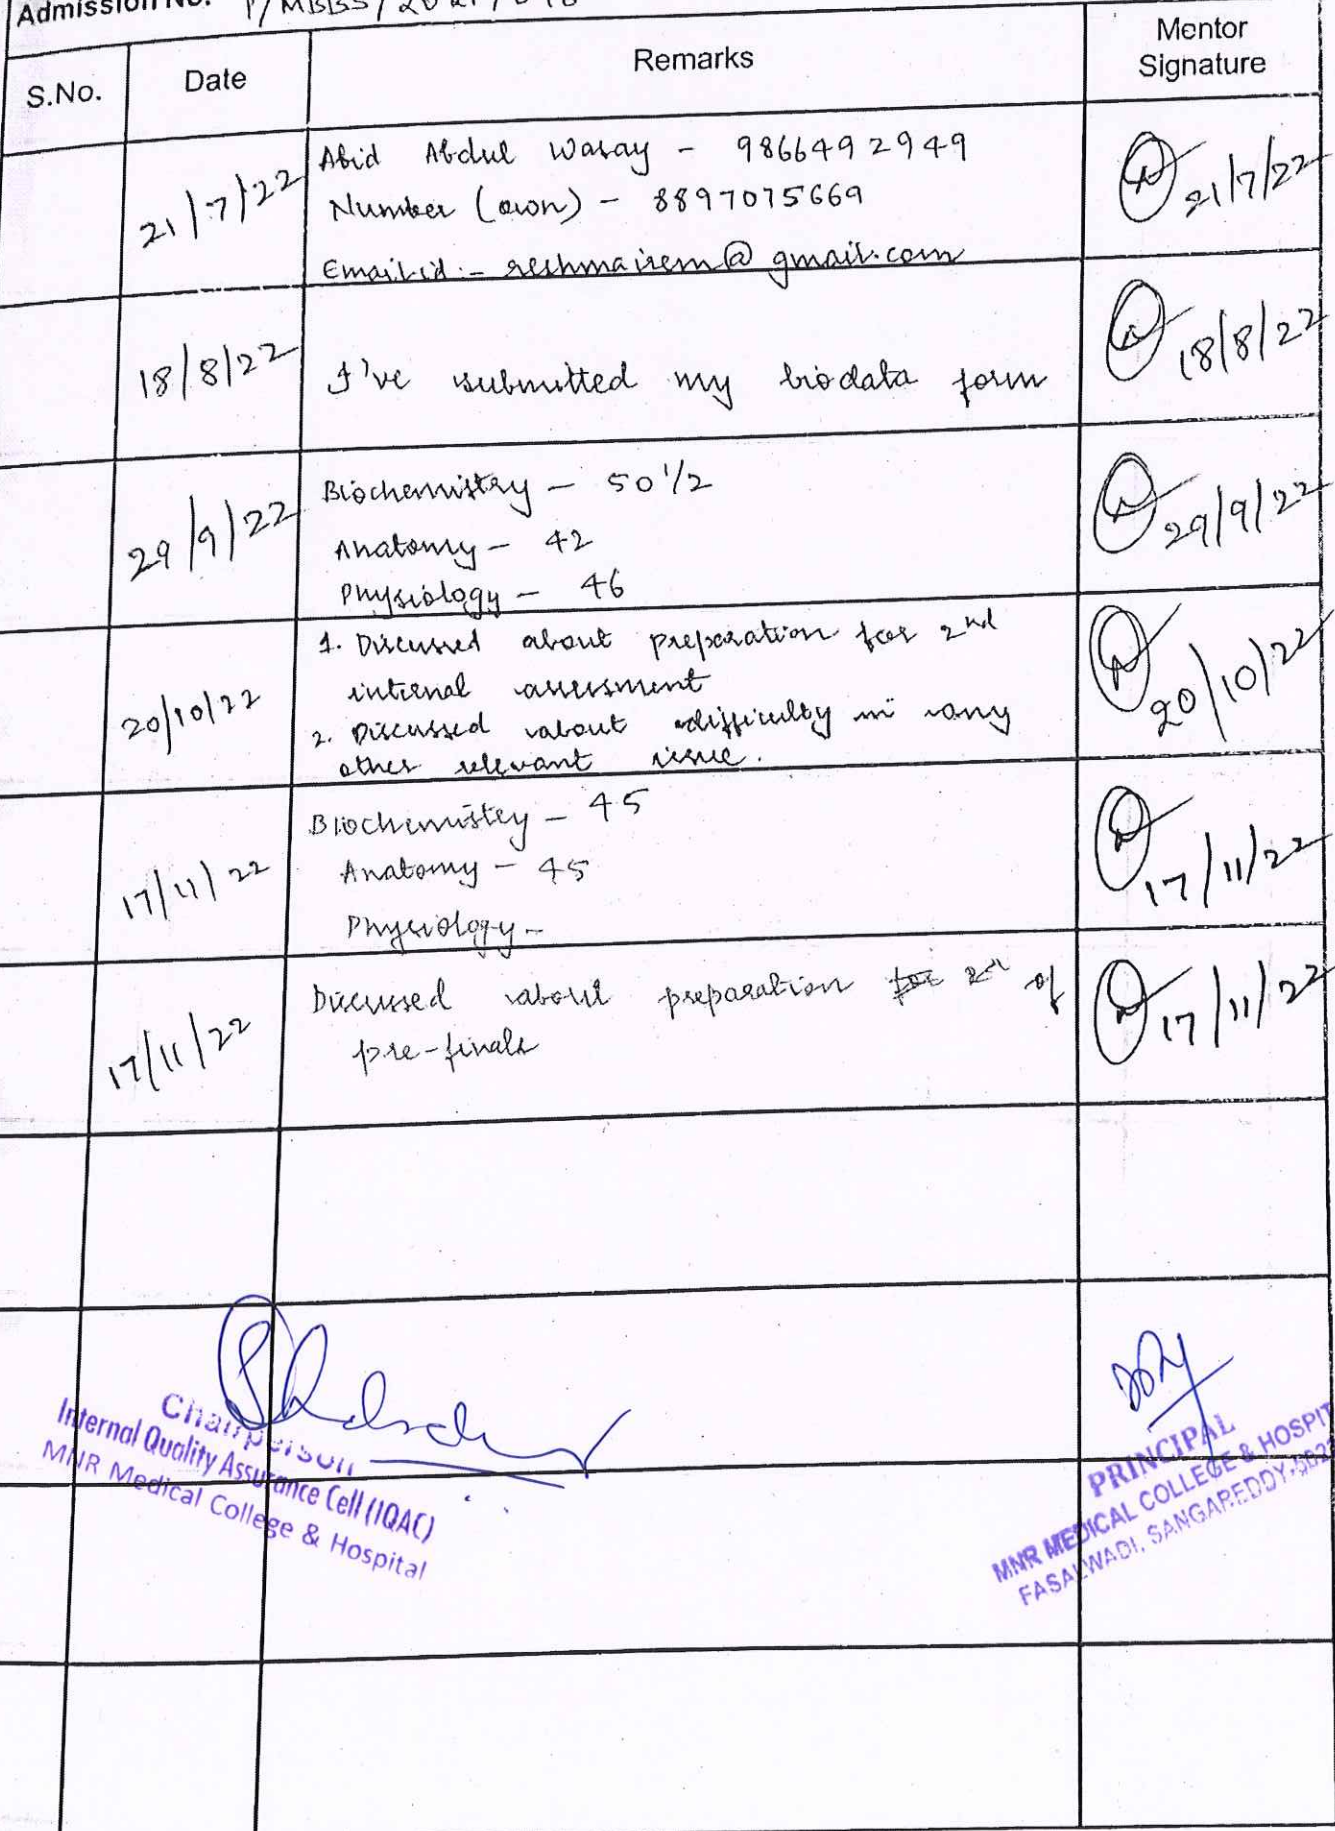 Admission No. P/MBBS/2021/
S.No. Date Remarks Mentor Signature
21/7/22 Abid Abdul Wasay - 9866492949 21/7/22
Number (own) - 8897075669
Email id :- reshmairem@gmail.com
18/8/22 I've submitted my biodata form 18/8/22
29/9/22 Biochemistry - 50 1/2 29/9/22
Anatomy - 42
Physiology - 46
20/10/22 1. Discussed about preparation for 2nd 20/10/22
internal assessment
2. Discussed about difficulty in any
other relevant issue.
17/11/22 Biochemistry - 45 17/11/22
Anatomy - 45
Physiology -
17/11/22 Discussed about preparation for 2nd of 17/11/22
pre-finals
Chairperson
Internal Quality Assurance Cell (IQAC)
MNR Medical College & Hospital
PRINCIPAL
MNR MEDICAL COLLEGE & HOSPIT
FASALWADI, SANGAREDDY-502